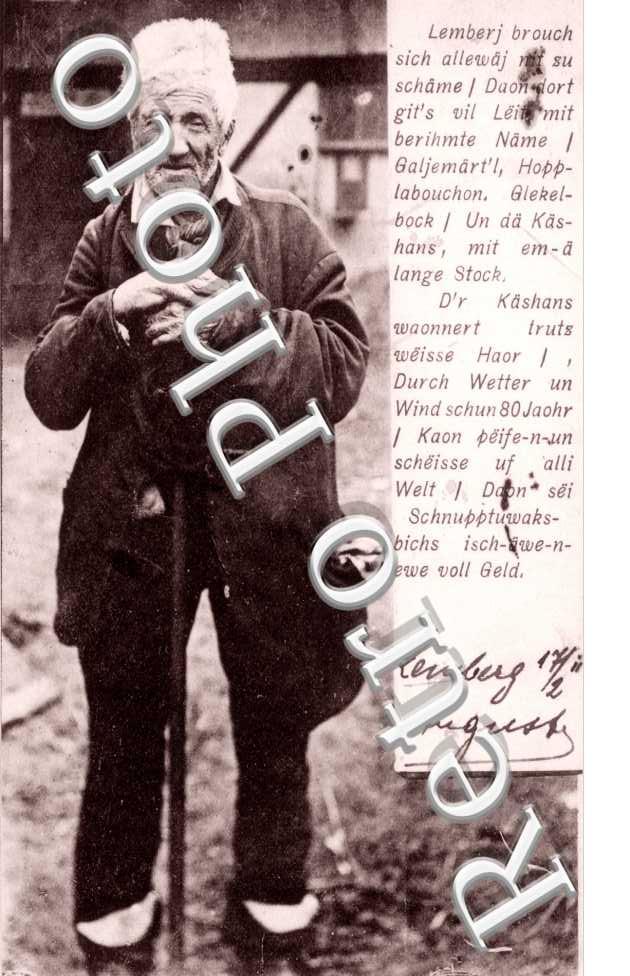 Lemberj brouch
sich allewäj nit zu
schäme / Daon dort
git's vil Lëit mit
berihmte Näme /
Galjemärt'l, Hopp-
labouchon, Glekel-
bock / Un dä Käs-
hans, mit em-ä
lange Stock.
D'r Käshans
waonnert trutz
wëisse Haor / ,
Durch Wetter un
Wind schun 80 Jaohr
/ Kaon pëife-n-un
schëisse uf alli
Welt / Daon sëi
Schnupptuwaks-
bichs isch-äwe-n-
ewe voll Geld.
Lemberg 17/II
2
August
Retro Photo